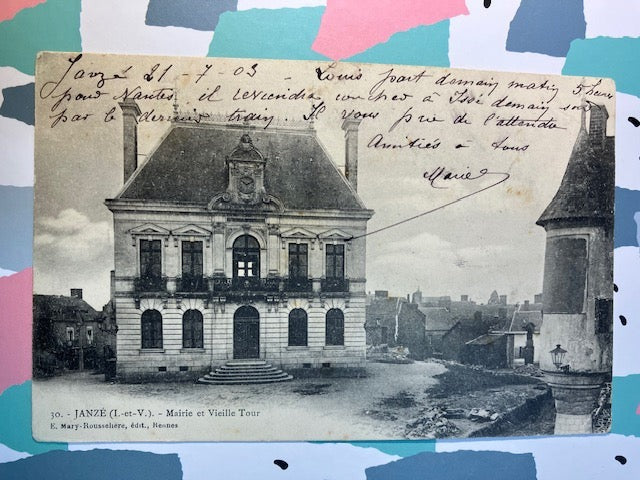 Janzé 21-7-03 - Louis part demain matin 5 heures
pour Nantes il reviendra coucher à Issé demain soir
par le dernier train. Il vous prie de l'attendre
Amitiés à tous
Marie
30. - JANZÉ (I.-et-V.). - Mairie et Vieille Tour
E. Mary-Rousselière, édit., Rennes